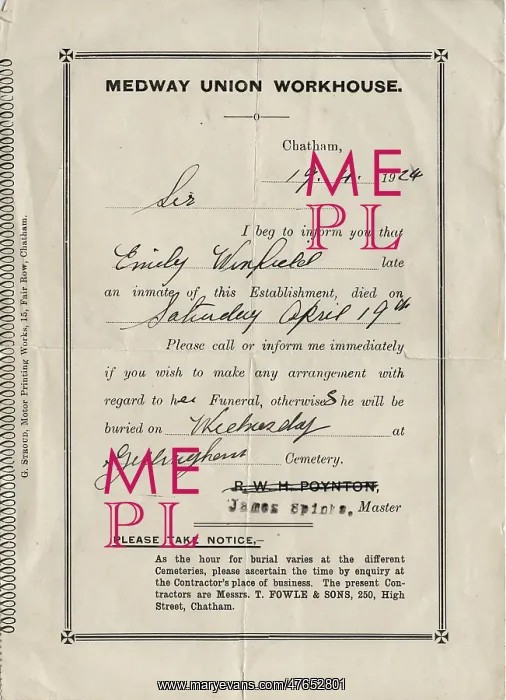 MEDWAY UNION WORKHOUSE.
Chatham,
19. 4. 1924
Sir
I beg to inform you that
Emily Winfield late
an inmate of this Establishment, died on
Saturday April 19th
Please call or inform me immediately
if you wish to make any arrangement with
regard to her Funeral, otherwise S he will be
buried on Wednesday at
Gillingham Cemetery.
R. W. H. POYNTON,
James Spinks, Master
PLEASE TAKE NOTICE,—
As the hour for burial varies at the different
Cemeteries, please ascertain the time by enquiry at
the Contractor's place of business. The present Con-
tractors are Messrs. T. FOWLE & SONS, 250, High
Street, Chatham.
G. STROUD, Motor Printing Works, 15, Fair Row, Chatham.
ME
PL
ME
PL
www.maryevans.com/47652801